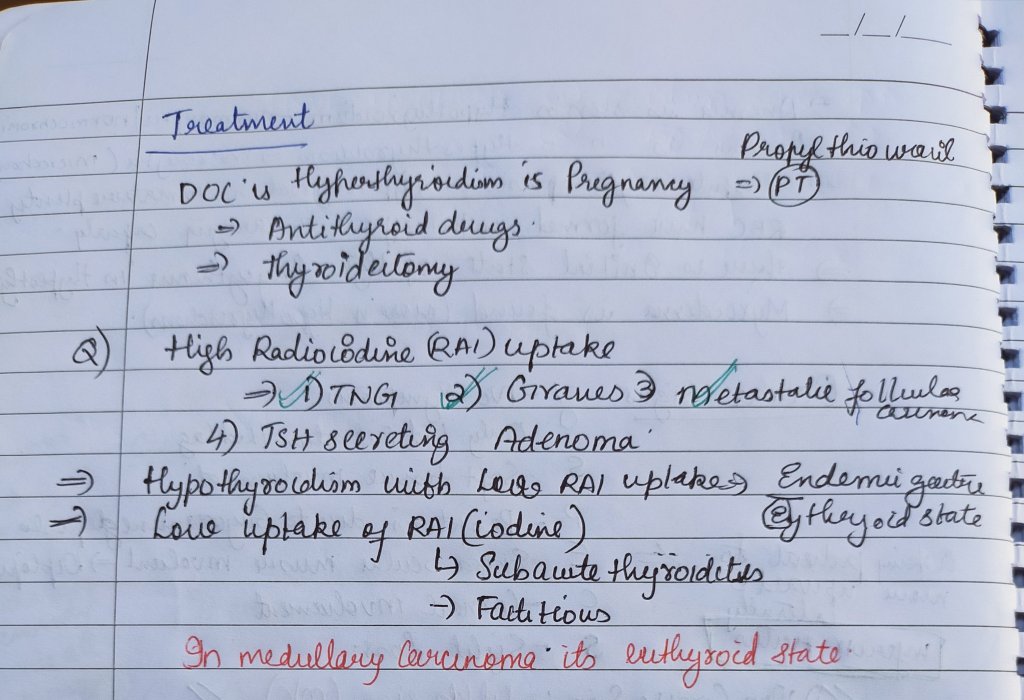 __/__/__
Treatment
Propylthiouracil
DOC is Hyperthyroidism is Pregnancy => PT
=> Antithyroid drugs.
=> Thyroidectomy
Q) High Radioiodine (RAI) uptake
=> 1) TNG 2) Graves 3 Metastatic follicular
carcinoma
4) TSH secreting Adenoma
=> Hypothyroidism with Low RAI uptake => Endemic goitre
=> Low uptake of RAI (iodine)
state
↳ Subacute thyroiditis
→ Factitious
In medullary Carcinoma its euthyroid state